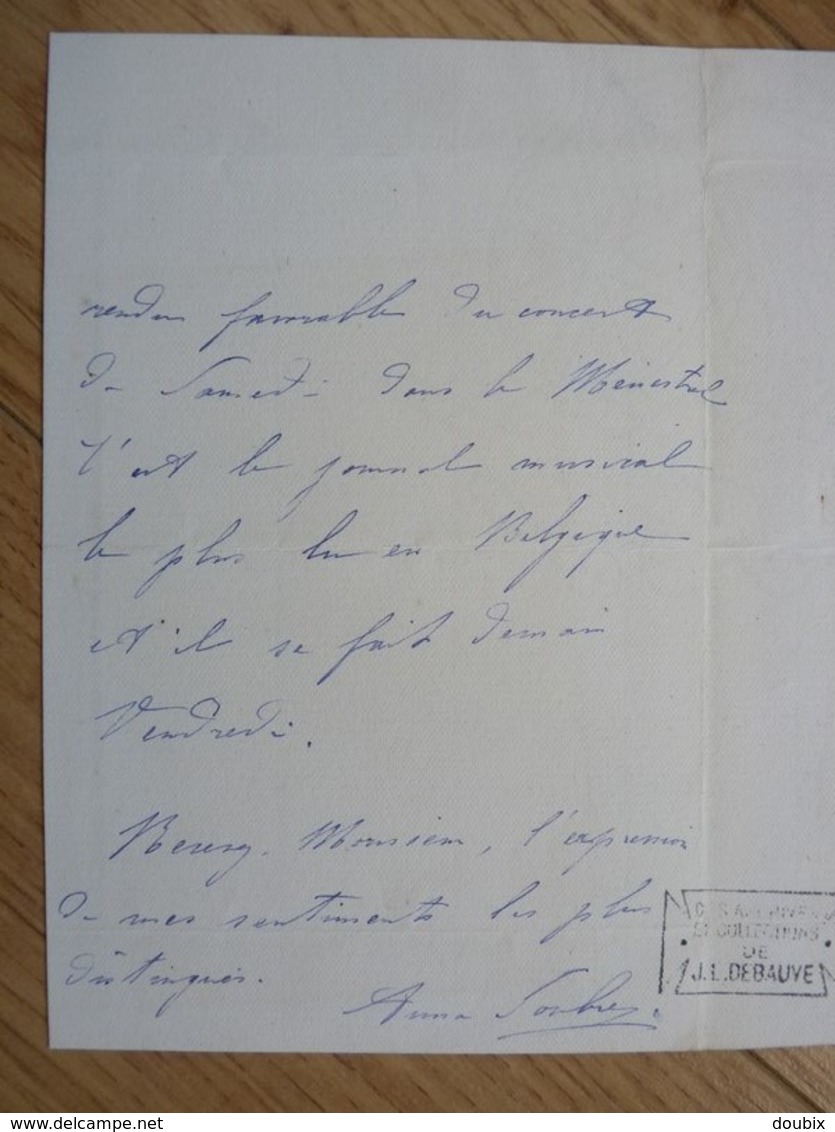 rendu favorable du concert
de Samedi dans le Ménestrel
C'est le journal musical
le plus lu en Belgique
et il se fait demain
Vendredi.
Recevez, Monsieur, l'expression
de mes sentiments les plus
distingués.
Anna Soubre
DES ARCHIVES
ET COLLECTIONS
DE
J.L. DEBAUVE
delcampe.net
doubix